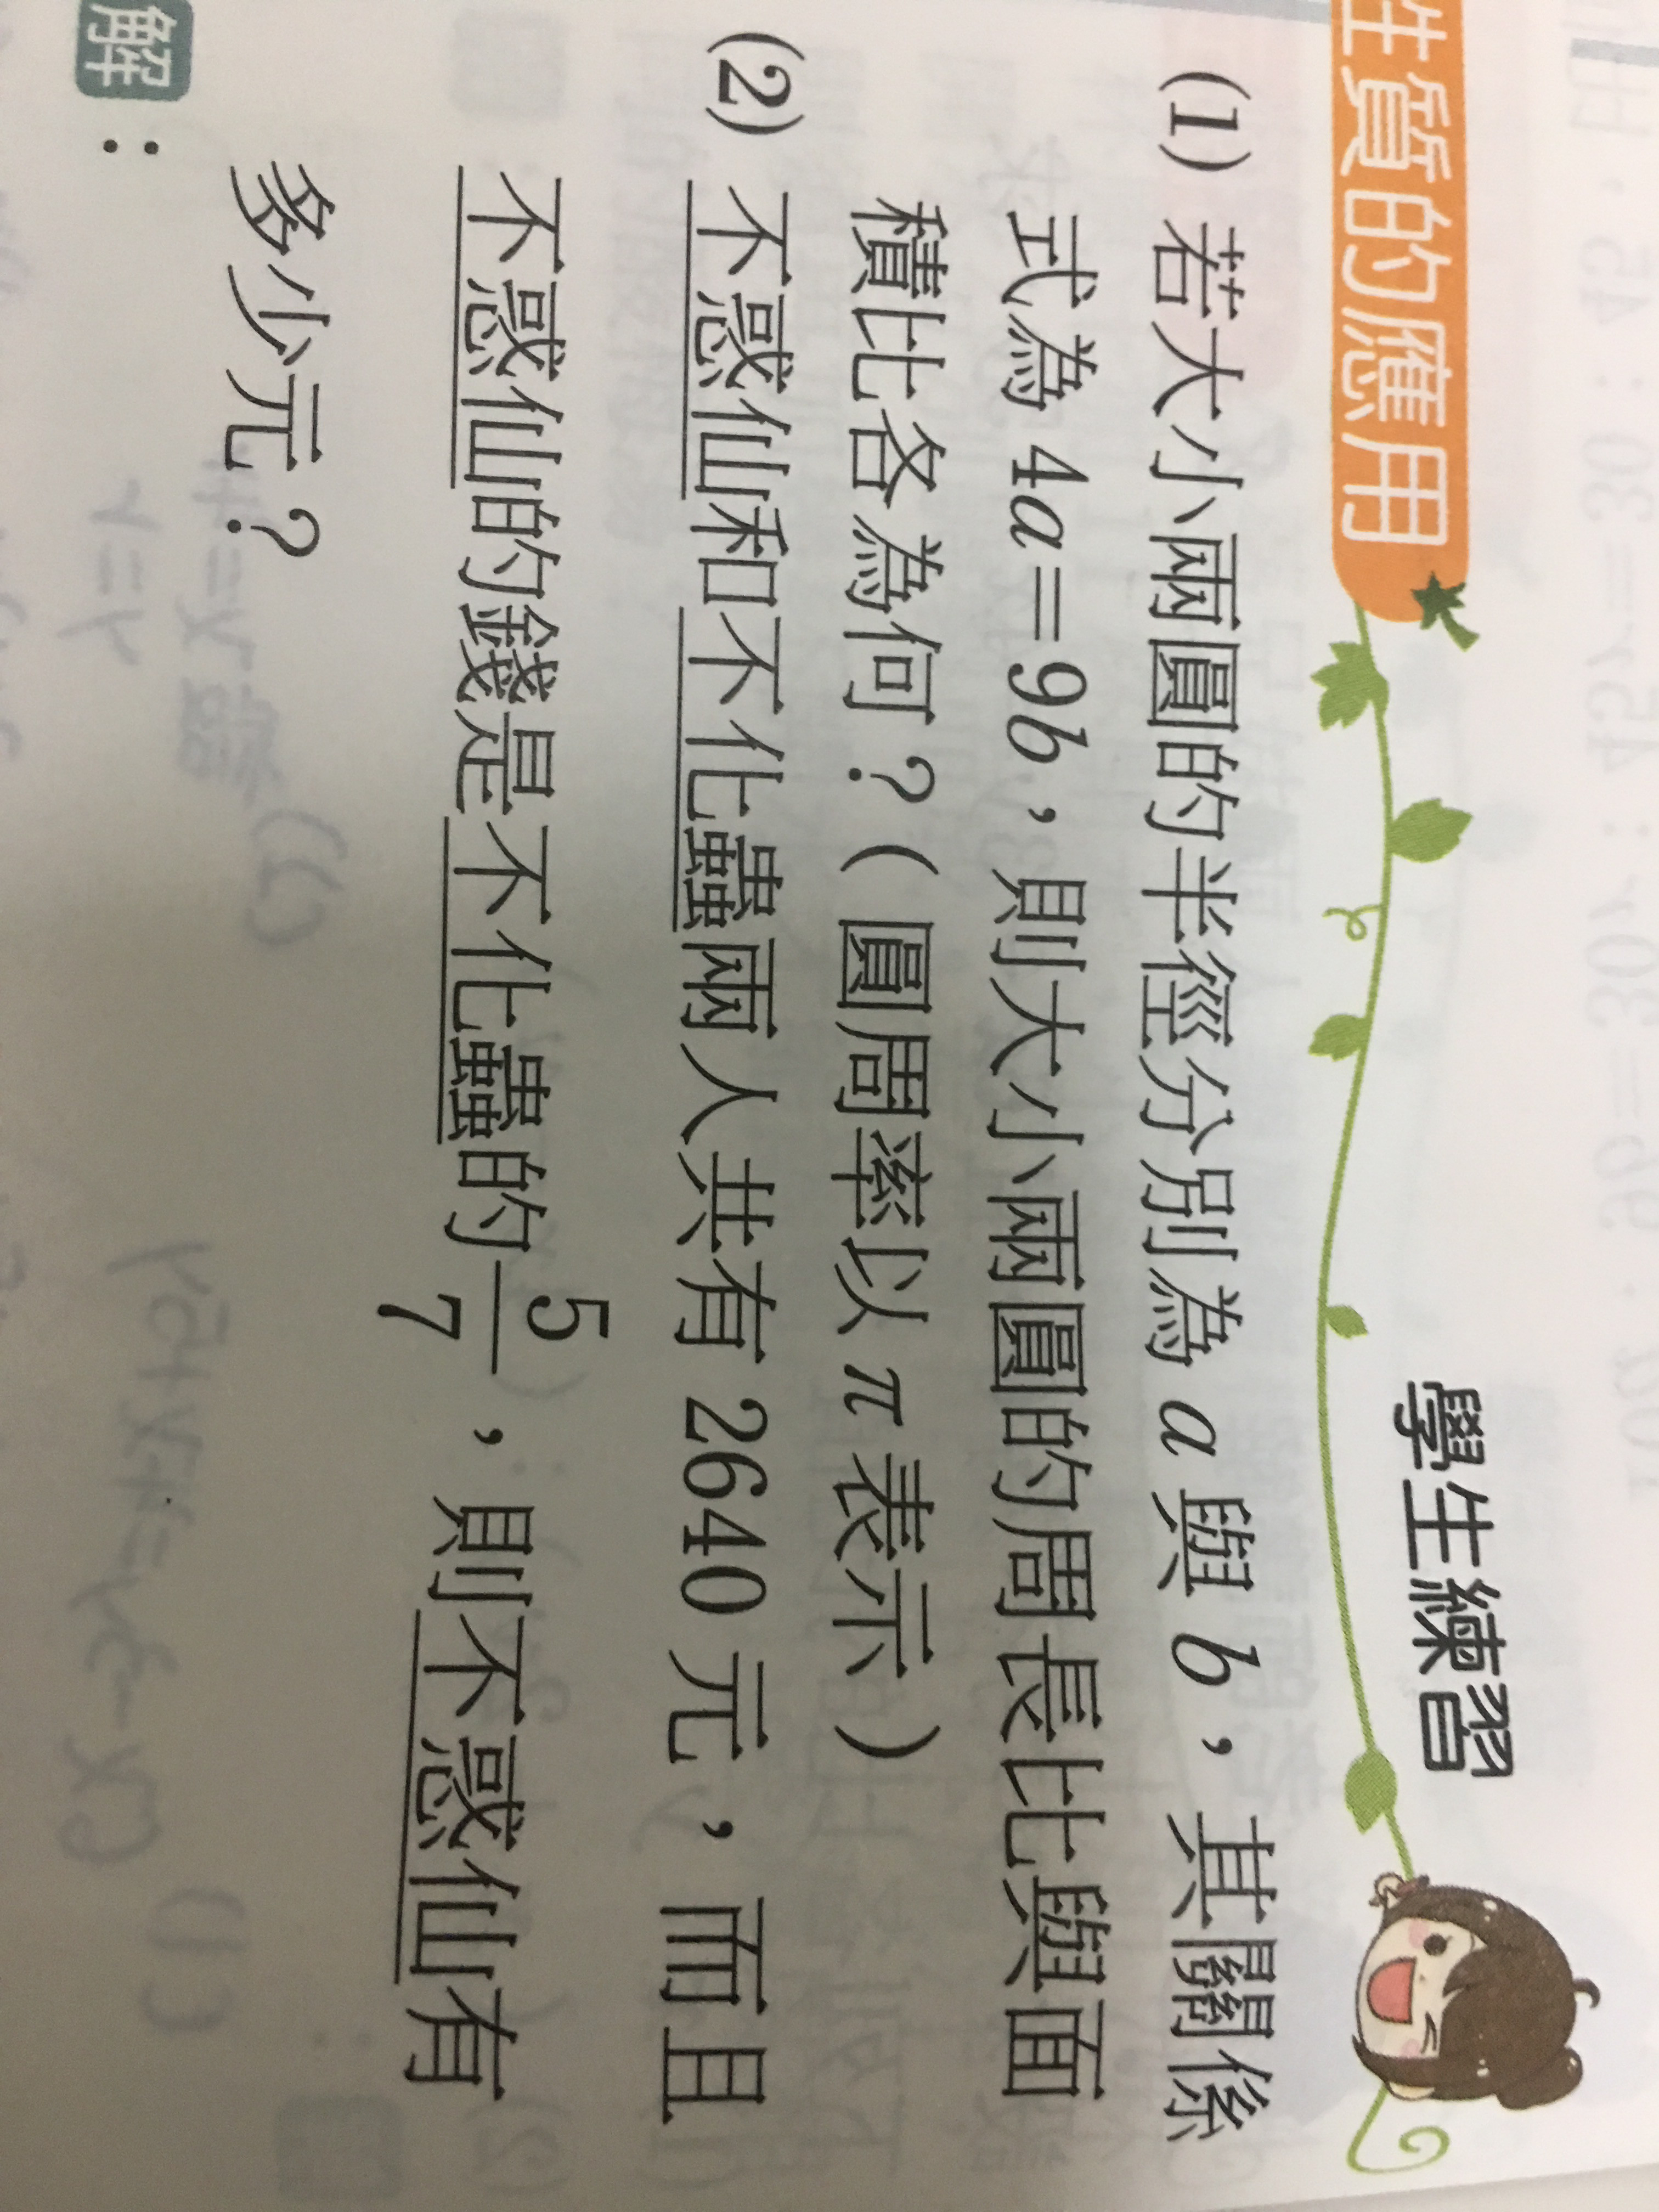 生質的應用
學生練習
(1) 若大小兩圓的半徑分別為 a 與 b，其關係
式為 4a＝9b，則大小兩圓的周長比與面
積比各為何？（圓周率以 π 表示）
(2) 不惑仙和不化蠱兩人共有 2640 元，而且
不惑仙的錢是不化蠱的 5/7，則不惑仙有
多少元？
解：